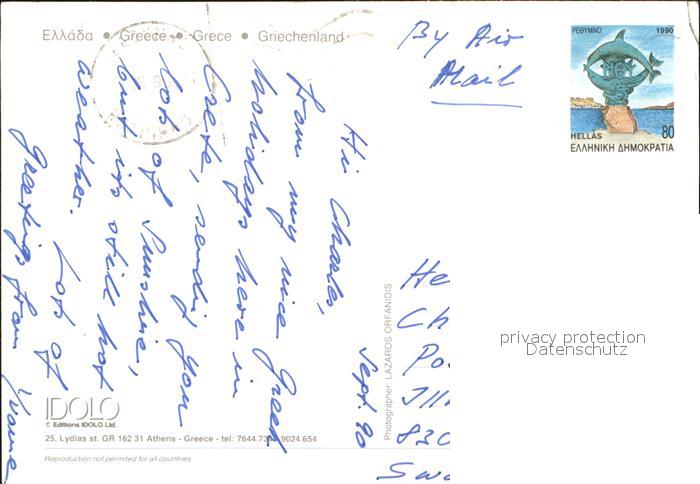 Ελλάδα • Greece • Grece • Griechenland
By Air
Mail
ΡΕΘΥΜΝΟ 1990
HELLAS 80
ΕΛΛΗΝΙΚΗ ΔΗΜΟΚΡΑΤΙΑ
Sept. 90
Hi Charles,
From my nice Greek
holidays here in
Crete, sending you
lots of Sunshine,
but its still hot
weather. Lots of
greetings from Yvonne
He
Ch
Po
Jll
830
Swa
privacy protection
Datenschutz
Photographer LAZAROS ORFANIDIS
IDOLO
© Editions IDOLO Ltd.
25, Lydias st. GR 162 31 Athens - Greece - tel: 7644.73 9024.654
Reproduction not permited for all countries.